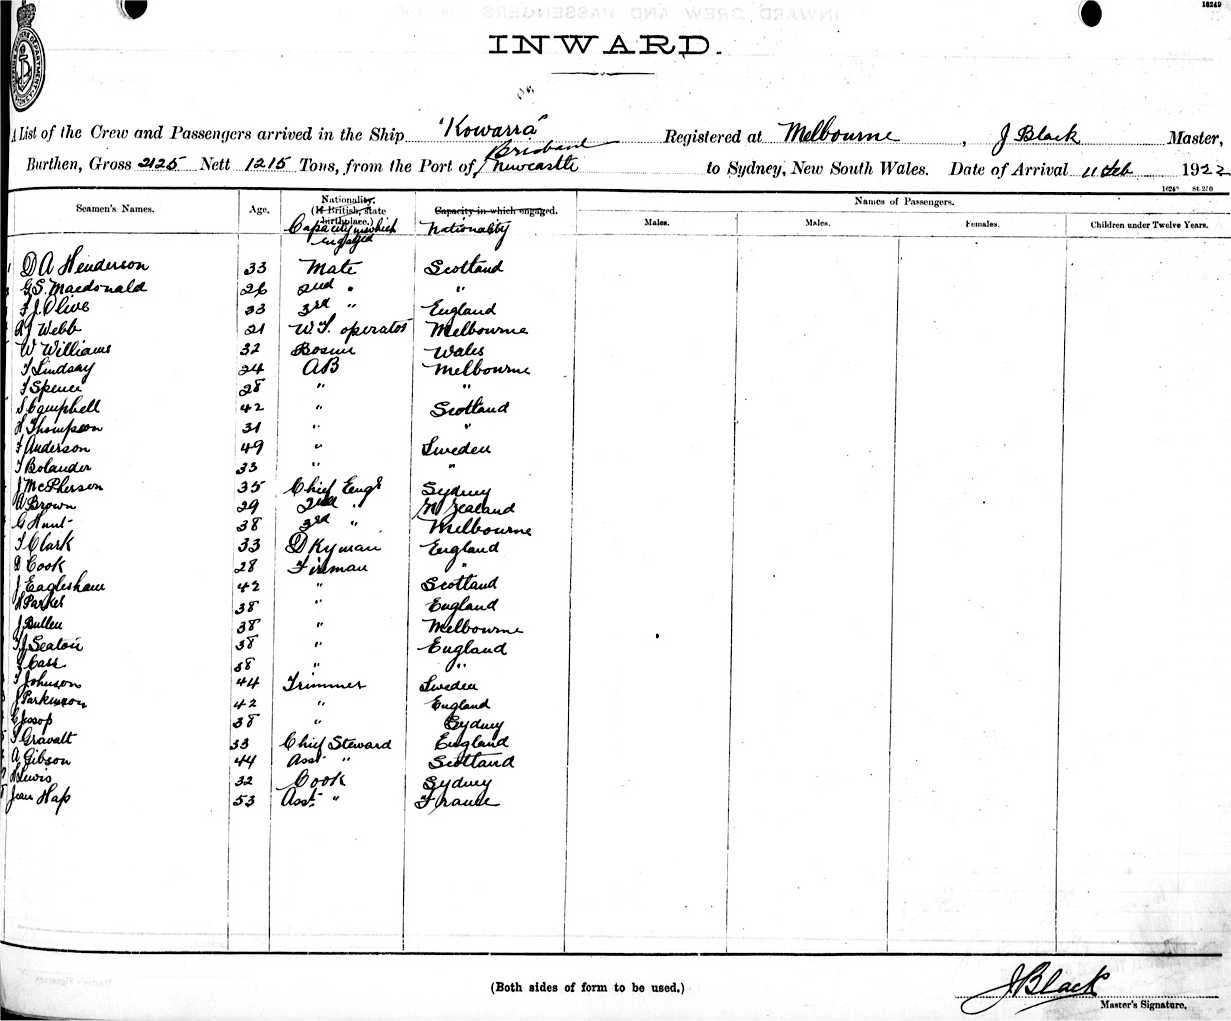 16249
INWARD.
A List of the Crew and Passengers arrived in the Ship "Kowarra" Registered at Melbourne, J Black Master,
Brisbane
Burthen, Gross 2125 Nett 1215 Tons, from the Port of Newcastle to Sydney, New South Wales. Date of Arrival 11 Feb 1922
16249 St.250
Seamen's Names. Age. Nationality. (If British, state birthplace.) Capacity in which engaged. Names of Passengers.
Capacity in which engaged Nationality Males. Males. Females. Children under Twelve Years.
D A Henderson 33 Mate Scotland
G S. Macdonald 26 2nd " "
F J. Olive 33 3rd " England
Webb 21 W.T. operator Melbourne
W Williams 32 Bosun Wales
T Lindsay 24 AB Melbourne
T Spence 28 " "
S Campbell 42 " Scotland
H Thompson 31 " "
F Anderson 49 " Sweden
T Bolander 33 " "
J McPherson 35 Chief Engr Sydney
W Brown 29 2nd " N Zealand
G Hunt 38 3rd " Melbourne
T Clark 33 Dkyman England
D Cook 28 Fireman "
J Eaglesham 42 " Scotland
H Parker 38 " England
J Bullen 38 " Melbourne
F J Seaton 38 " England
Carr 58 " "
T Johnson 44 Trimmer Sweden
J Parkinson 42 " England
C Jessop 38 " Sydney
T Gravatt 33 Chief Steward England
A Gibson 44 Asst " Scotland
H Lewis 32 Cook Sydney
Jean Hap 53 Asst " France
(Both sides of form to be used.)
J Black
Master's Signature.